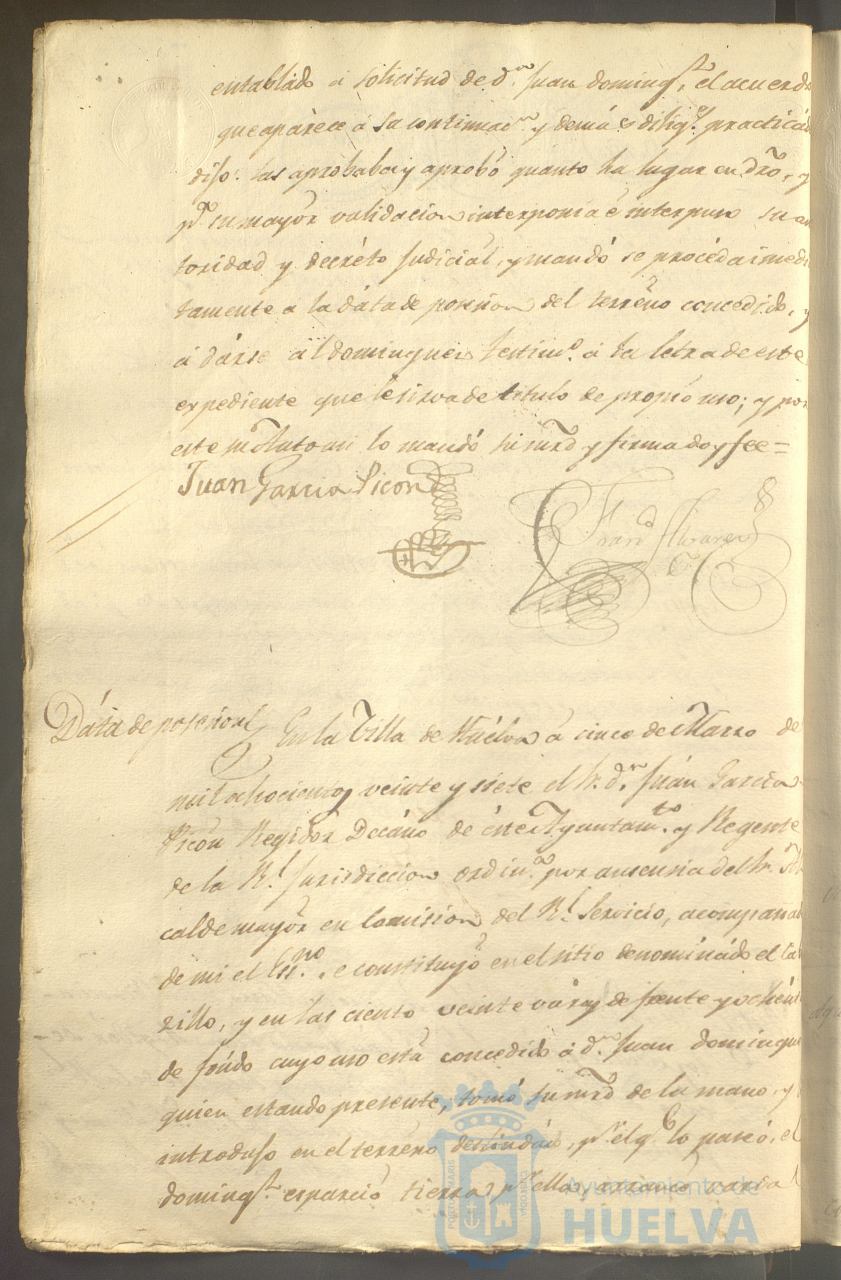 entablado a solicitud de dn. Juan Doming.s, el acuerdo
que aparece a su continuac.n y demás dilig.s practicad
dijo: las aprobaba y aprobó quanto ha lugar en dro, y
p.a su mayor validacion interponia é interpuso su au
toridad y decréto judicial, y mandó se procéda inmedi
tamente a la dáta de posesion del terréno concedido, y
á dárse al Dominguez testim.o á la letra de este
expediente que le sirva de titulo de propio uso; y por
este su Auto asi lo mandó su mrd y firma doy fee=
Juan Garcia Picon
Fran.co Alvarez
Dáta de posesion En la Villa de Huélva a cinco de Marzo de
mil ochocientos veinte y siete el Sr. dn. Juán Garcia
Picón Regidor Decáno de éste Ayuntam.to y Regente
de la Rl. Jurisdiccion ordin.a por ausencia del Sr. Al
calde mayor en Comision del Rl. Servicio, acompañad
de mi el Ess.no se constituyó en el sitio denominádo el Ca
rillo, y en las ciento veinte varas de frente y ochént
de fóndo cuyo uso está concedido á dn. Juan Domingue
quien estando presente, tomó su mrd de la mano, y
introdujo en el terréno deslindado, p.r el q.e lo paseó, el
Doming.s esparció tierra p.r ella, arrancó varia
Ayuntamiento de
HUELVA